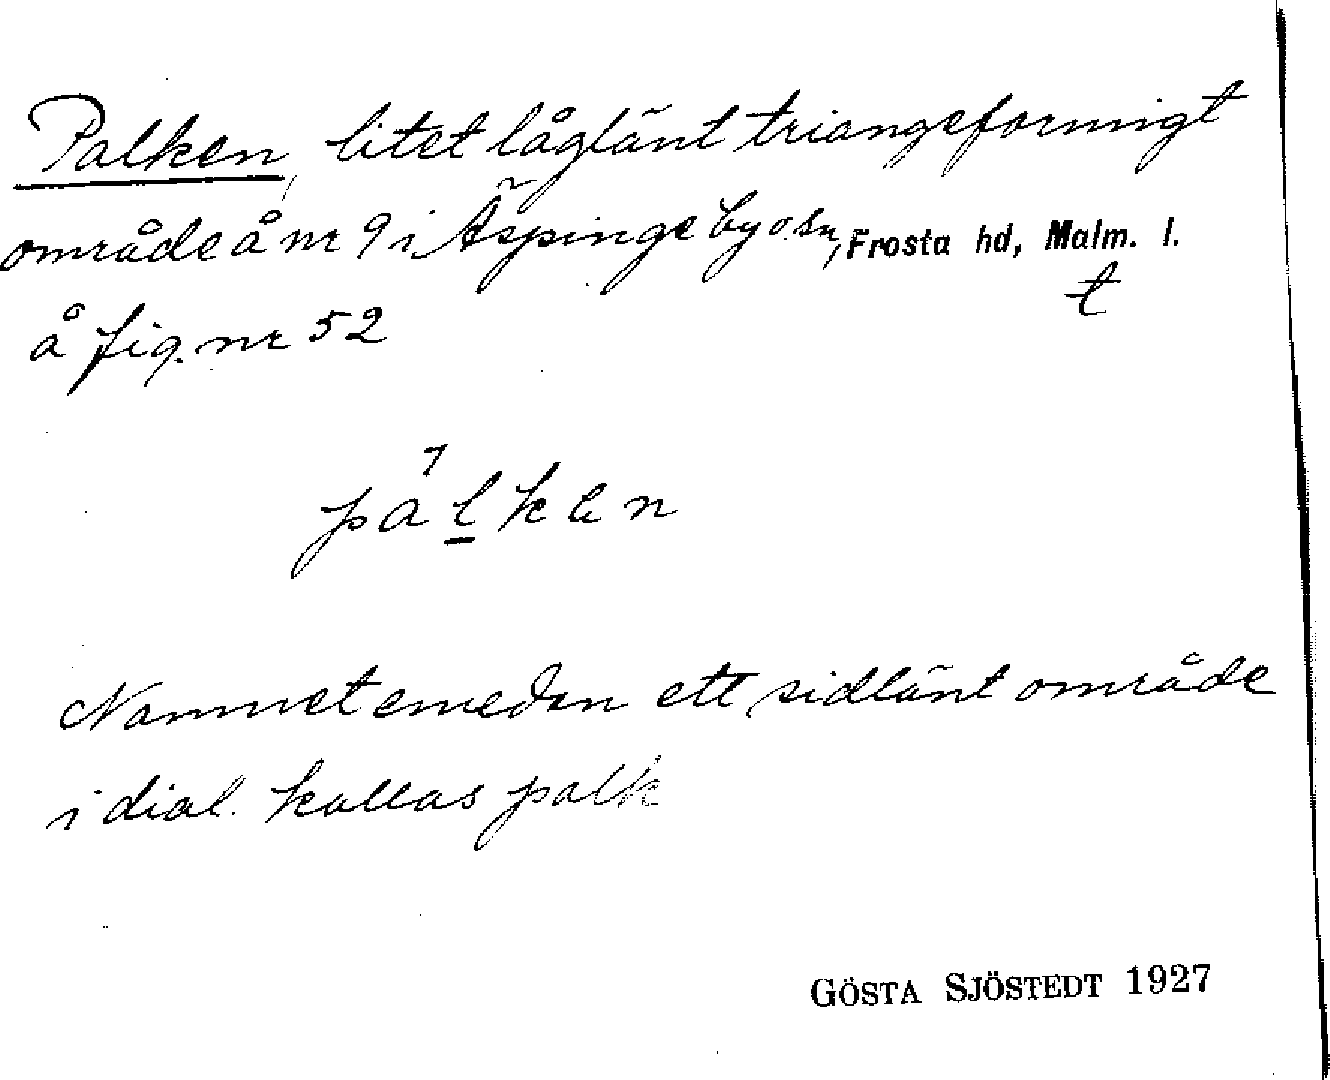 Palken, litet låglänt triangeformigt
område å nr 9 i Äspinge by o. sn, Frosta hd, Malm. l.
t
å fig. nr 52
pàlken
Namnet emedan ett sidlänt område
i dial. kallas palk
GÖSTA SJÖSTEDT 1927